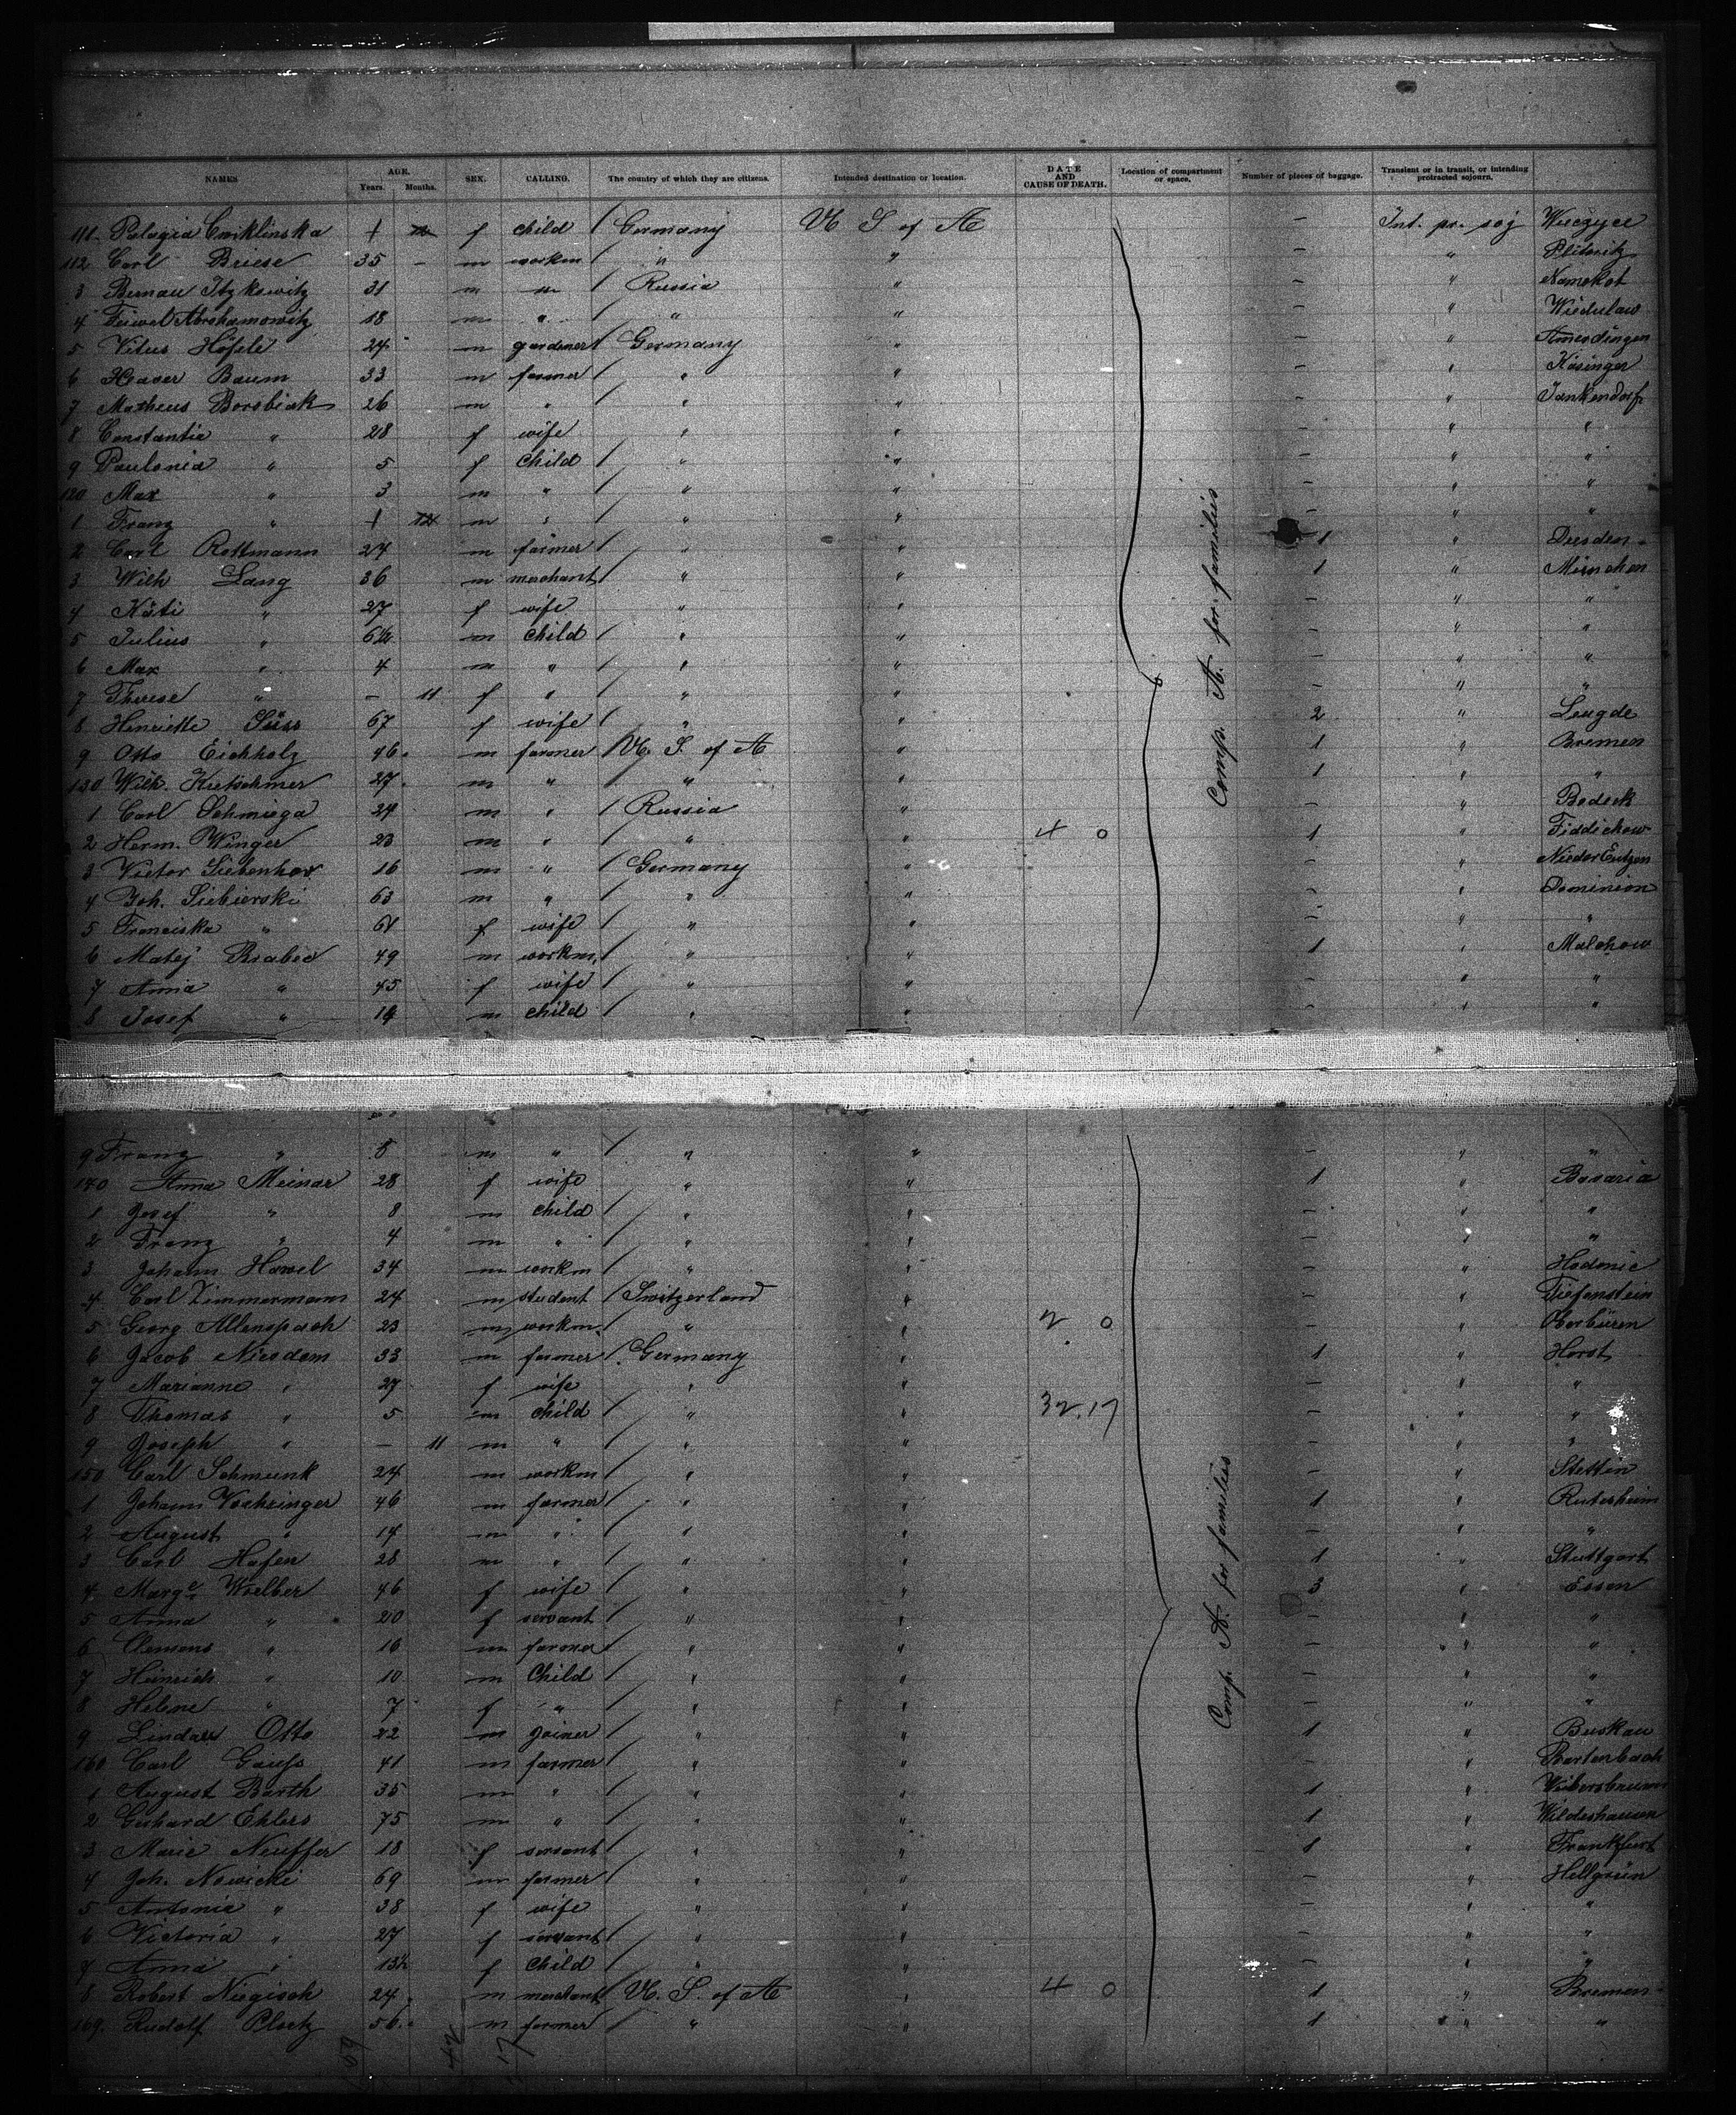 NAMES AGE. Years. Months. SEX. CALLING. The country of which they are citizens. Intended destination or location. DATE AND CAUSE OF DEATH. Location of compartment or space. Number of pieces of baggage. Transient or in transit, or intending protracted sojourn.
111 Pelagia Cwiklinska 1 f child Germany U. S. of A - Int. pr. soj
112 Carl Briese 35 - m workm " " - "
3 Itzkowitz 31 m " Russia " - "
4 Abrahamowitz 18 m " " " - "
5 Vitus Höfele 24 m gardener Germany " - " Amerdingen
6 Xaver Baum 33 m farmer " " - "
7 Matheus Borobiak 26 m " " " - " Jankendorf
8 Constantia " 28 f wife " " - " "
9 Paulonia " 5 f child " " - " "
120 Max " 3 m " " " - " "
1 Franz " 1 m " " " - " "
2 Carl Rottmann 24 m farmer " " 1 " Dresden
3 Wilh Lang 36 m merchant " " 1 " München
4 Käti " 27 f wife " " - " "
5 Julius " 6½ m child " " - " "
6 Max " 4 m " " " - " "
7 Therese " - 11 f " " " - " "
8 Henriette Süss 67 f wife " " 2 " Leugde
9 Otto Eichholz 46 m farmer U. S. of A " 1 " Bremen
130 Wilh. Kretschmer 27 m " " " 1 " "
1 Carl Schmiega 24 m " Russia " - "
2 Herm. Winger 23 m " " " 4 0 1 " Fiddichow
3 Victor 16 m " Germany " - "
4 Joh. Siebierski 63 m " " " - " Dominion
5 Franciska " 61 f wife " " - " "
6 Matej Brabec 49 m workm. " " 1 " Malchow
7 Anna " 45 f wife " " - " "
8 Josef " 14 m child " " - " "
Comp. A. for families
9 Franz " 8 m " " " - " "
140 Anna Meinar 28 f wife " " 1 " Bavaria
1 Josef " 8 m child " " - " "
2 Franz " 4 m " " " - " "
3 Johann Hawel 34 m workm " " - " Hodonic
4 Carl Zimmermann 24 m student Switzerland " - " Tiefenstein
5 Georg Allenspach 23 m workm. " " 2 0 - " Oberbüren
6 Jacob Niesdom 33 m farmer Germany " 1 " Horst
7 Marianne " 27 f wife " " - " "
8 Thomas " 5 m child " " 32.17 - " "
9 Joseph " - 11 m " " " - " "
150 Carl Schmunk 24 m workm " " - " Stettin
1 Johann Voehringer 46 m farmer " " 1 " Rutesheim
2 August " 14 m " " " - " "
3 Carl Hafen 28 m " " " 1 " Stuttgart
4 Marge Woelber 46 f wife " " 3 " Essen
5 Anna " 20 f servant " " - " "
6 Clemens " 16 m farmer " " - " "
7 Heinrich " 10 m Child " " - " "
8 Helene " 7 f " " " - " "
9 Lindau Otto 22 m joiner " " 1 " Buskau
160 Carl Gauss 41 m farmer " " - " Bartenbach
1 August Barth 35 m " " " 1 " Weibersbrunn
2 Gerhard Ehlers 75 m " " " 1 " Wildeshausen
3 Marie Neuffer 18 f servant " " 1 " Frankfurt
4 Joh. Nowicki 69 m farmer " " - " Hellgrün
5 Antonia " 38 f wife " " - " "
6 Victoria " 27 f servant " " - " "
7 Anna " f child " " - " "
8 Robert Niegisch 24 m merchant U. S. of A " 4 0 1 " Bremen
169. Rudolf Ploetz 56 m farmer " " 1 " "
Comp. A. for families
169 42 17